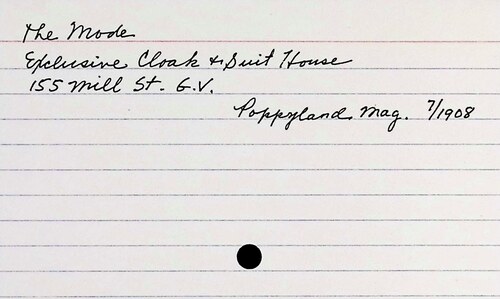 The Mode
Exclusive Cloak & Suit House
155 Mill St. G.V.
Poppyland Mag. 7/1908